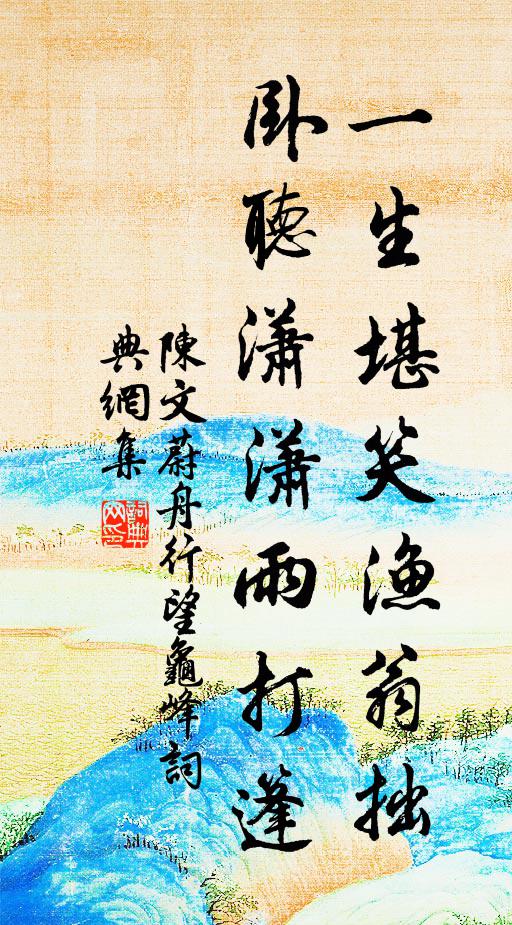 一生堪笑漁翁拙
臥聽瀟瀟雨打蓬
陳文蔚舟行望龜峰詞
典網集
詞典
网印